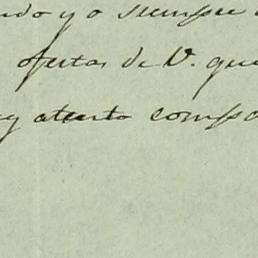 ndo yo siempre
ofertas de V. que
y atento compa